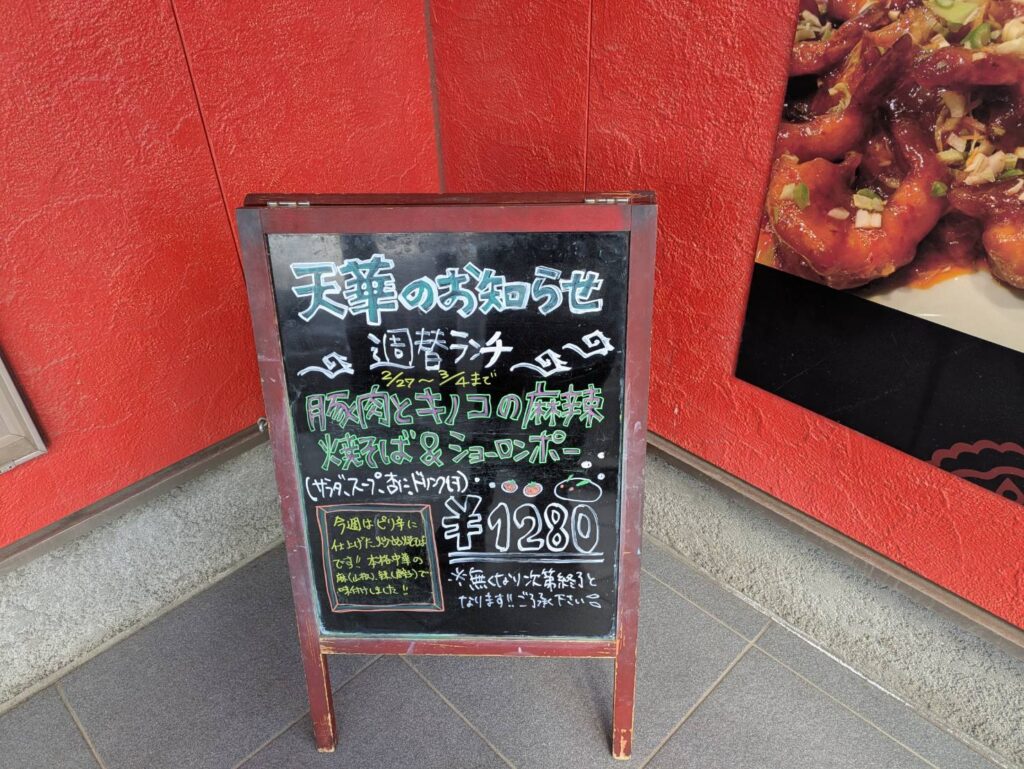 天華のお知らせ
週替ランチ
2/27～3/4まで
豚肉とキノコの麻辣
焼そば&ショーロンポー
(サラダ、スープ、杏仁、ドリンク付)
¥1280
今週はピリ辛に
仕上げた
です!! 本格中華の
味付けしました!!
※無くなり次第終了と
なります!!ご了承下さい